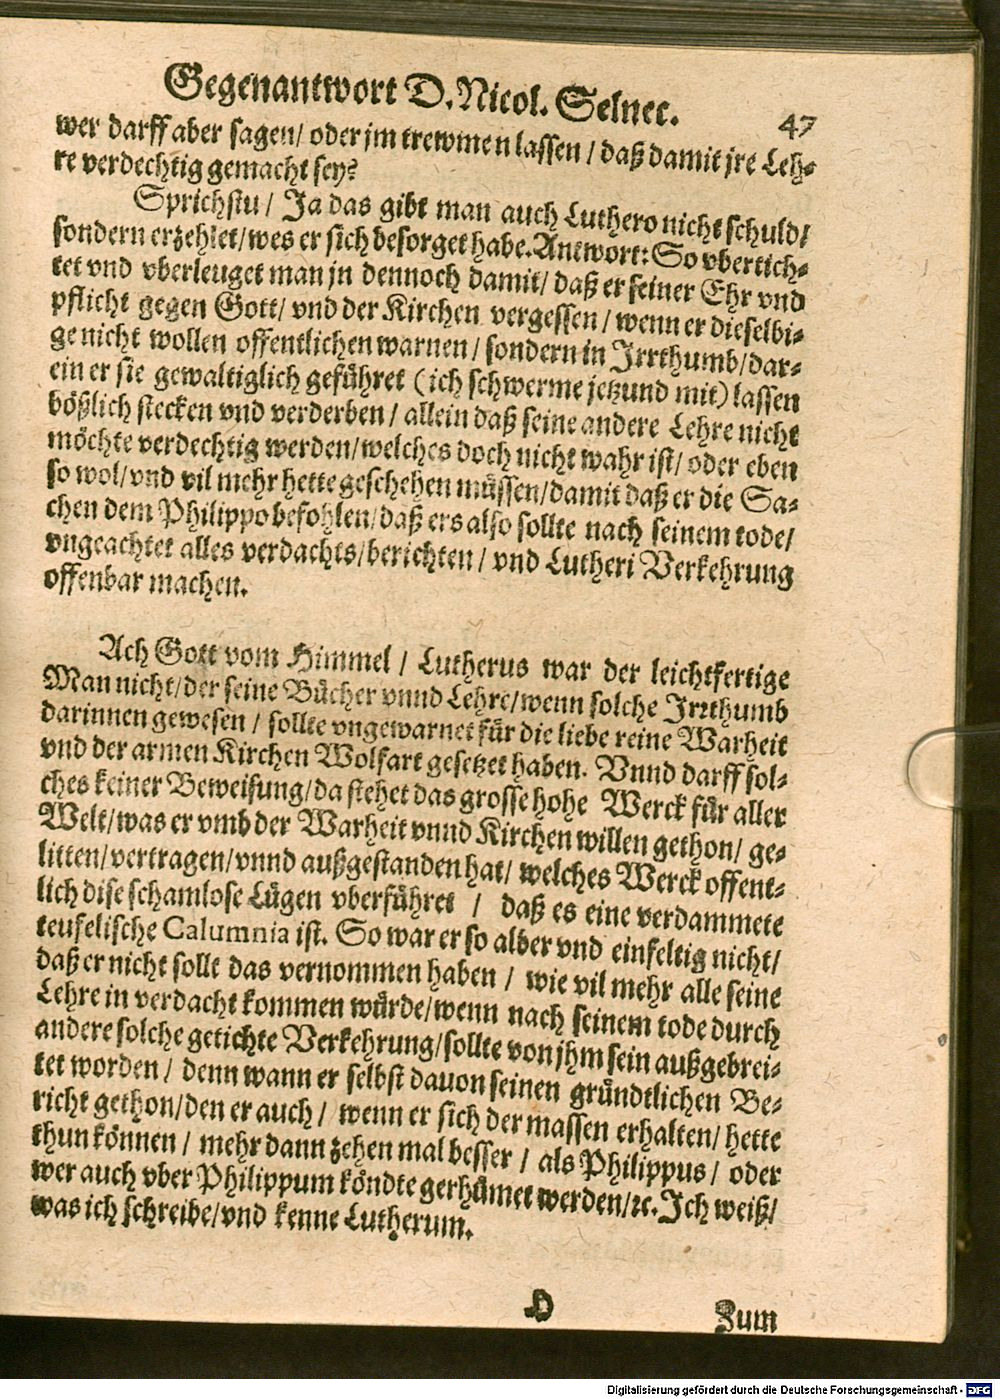 Gegenantwort D. Nicol. Selnec.
47
wer darff aber sagen/ oder jm trewmen lassen / daß damit jre Leh-
re verdechtig gemacht sey?
Sprichstu / Ja das gibt man auch Luthero nicht schuld/
sondern erzehlet/wes er sich besorget habe. Antwort: So vbertich-
tet vnd vberleuget man jn dennoch damit/ daß er seiner Ehr vnd
pflicht gegen Gott/ vnd der Kirchen vergessen / wenn er dieselbi-
ge nicht wollen offentlichen warnen / sondern in Irrthumb/dar-
ein er sie gewaltiglich geführet (ich schwerme jetzund mit) lassen
bößlich stecken vnd verderben / allein daß seine andere Lehre nicht
möchte verdechtig werden/welches doch nicht wahr ist/ oder eben
so wol/vnd vil mehr hette geschehen müssen/damit daß er die Sa-
chen dem Philippo befohlen/daß ers also sollte nach seinem tode/
vngeachtet alles verdachts/berichten / vnd Lutheri Verkehrung
offenbar machen.
Ach Gott vom Himmel / Lutherus war der leichtfertige
Man nicht/der seine Bücher vnnd Lehre/wenn solche Irrthumb
darinnen gewesen / sollte vngewarnet für die liebe reine Warheit
vnd der armen Kirchen Wolfart gesetzet haben. Vnnd darff sol-
ches keiner Beweisung/da stehet das grosse hohe Werck für aller
Welt/was er vmb der Warheit vnnd Kirchen willen gethon/ ge-
litten/vertragen/vnnd außgestanden hat/ welches Werck offent-
lich dise schamlose Lügen vberführet / daß es eine verdammete
teufelische Calumnia ist. So war er so alber vnd einfeltig nicht/
daß er nicht sollt das vernommen haben / wie vil mehr alle seine
Lehre in verdacht kommen würde/wenn nach seinem tode durch
andere solche getichte Verkehrung/sollte von jhm sein außgebrei-
tet worden / denn wann er selbst dauon seinen gründtlichen Be-
richt gethon/den er auch / wenn er sich der massen erhalten/ hette
thun können / mehr dann zehen mal besser / als Philippus / oder
wer auch vber Philippum köndte gerhümet werden/ꝛc. Ich weiß/
was ich schreibe/vnd kenne Lutherum.
Zum
Digitalisierung gefördert durch die Deutsche Forschungsgemeinschaft - DFG